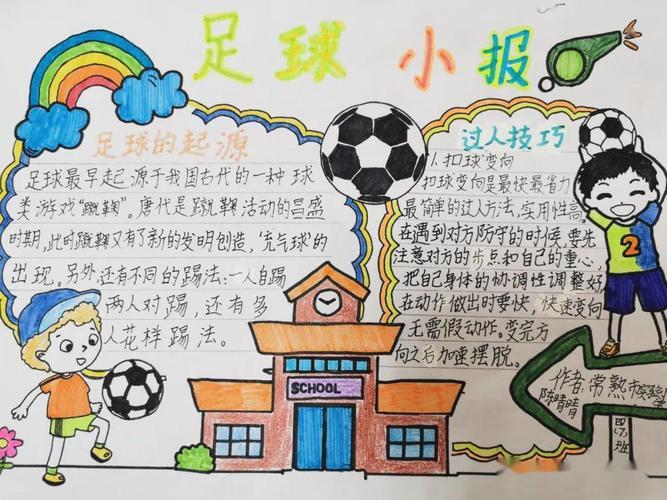 足球小报
足球的起源
足球最早起源于我国古代的一种球
类游戏“蹴鞠”。唐代是蹴鞠活动的昌盛
时期,此时蹴鞠又有了新的发明创造,“充气球”的
出现。另外,还有不同的踢法:一人自踢
两人对踢,还有多
人花样踢法。
过人技巧
1、扣球变向
扣球变向是最快最省力
最简单的过人方法,实用性高。
在遇到对方防守的时候,要先
注意对方的步点和自己的重心,
把自己身体的协调性调整好
在动作做出时要快,快速变向
无需假动作。变完方
向之后加速摆脱。
2
SCHOOL
作者:常熟市实验小学
陈晴晴